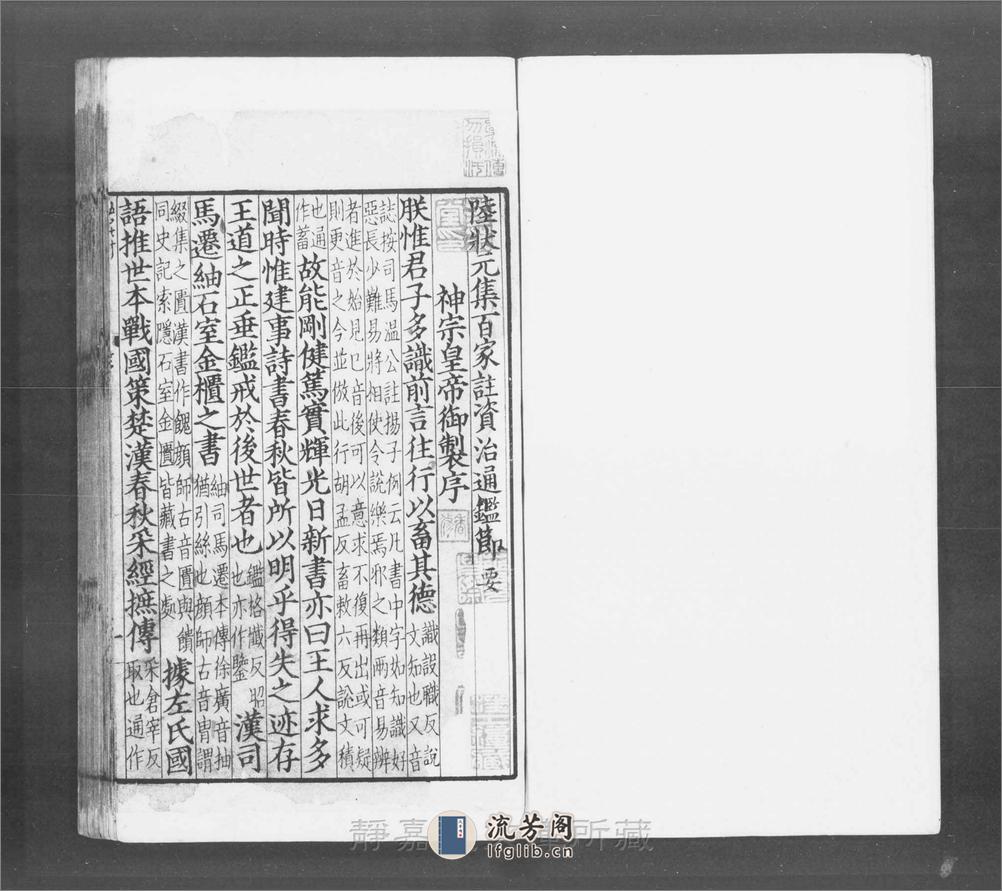 陸狀元集百家註資治通鑑節要
神宗皇帝御製序
朕惟君子多識前言往行以畜其德
識設職反說
文知也又音
誌按司馬温公註揚子例云凡書中字如知識好
惡長少難易將相使令說樂焉邪之類兩音易辨
者進於始見巳音後可以意求不復再出或可疑
則更音之今並倣此行胡孟反畜敕六反說文積
也通
作蓄
故能剛健篤實輝光日新書亦曰王人求多
聞時惟建事詩書春秋皆所以明乎得失之迹存
王道之正垂鑑戒於後世者也
鑑格懺反昭
也亦作鑒
漢司
馬遷紬石室金櫃之書
紬司馬遷本傳徐廣音抽
猶引絲也顔師古音冑謂
綴集之匱漢書作顔師古音匱與鐀
同史記索隱石室金匱皆藏書之處
據左氏國
語推世本戰國策楚漢春秋采經摭傳
采倉宰反
取也通作
靜嘉 所藏
流芳阁
lfglib.cn